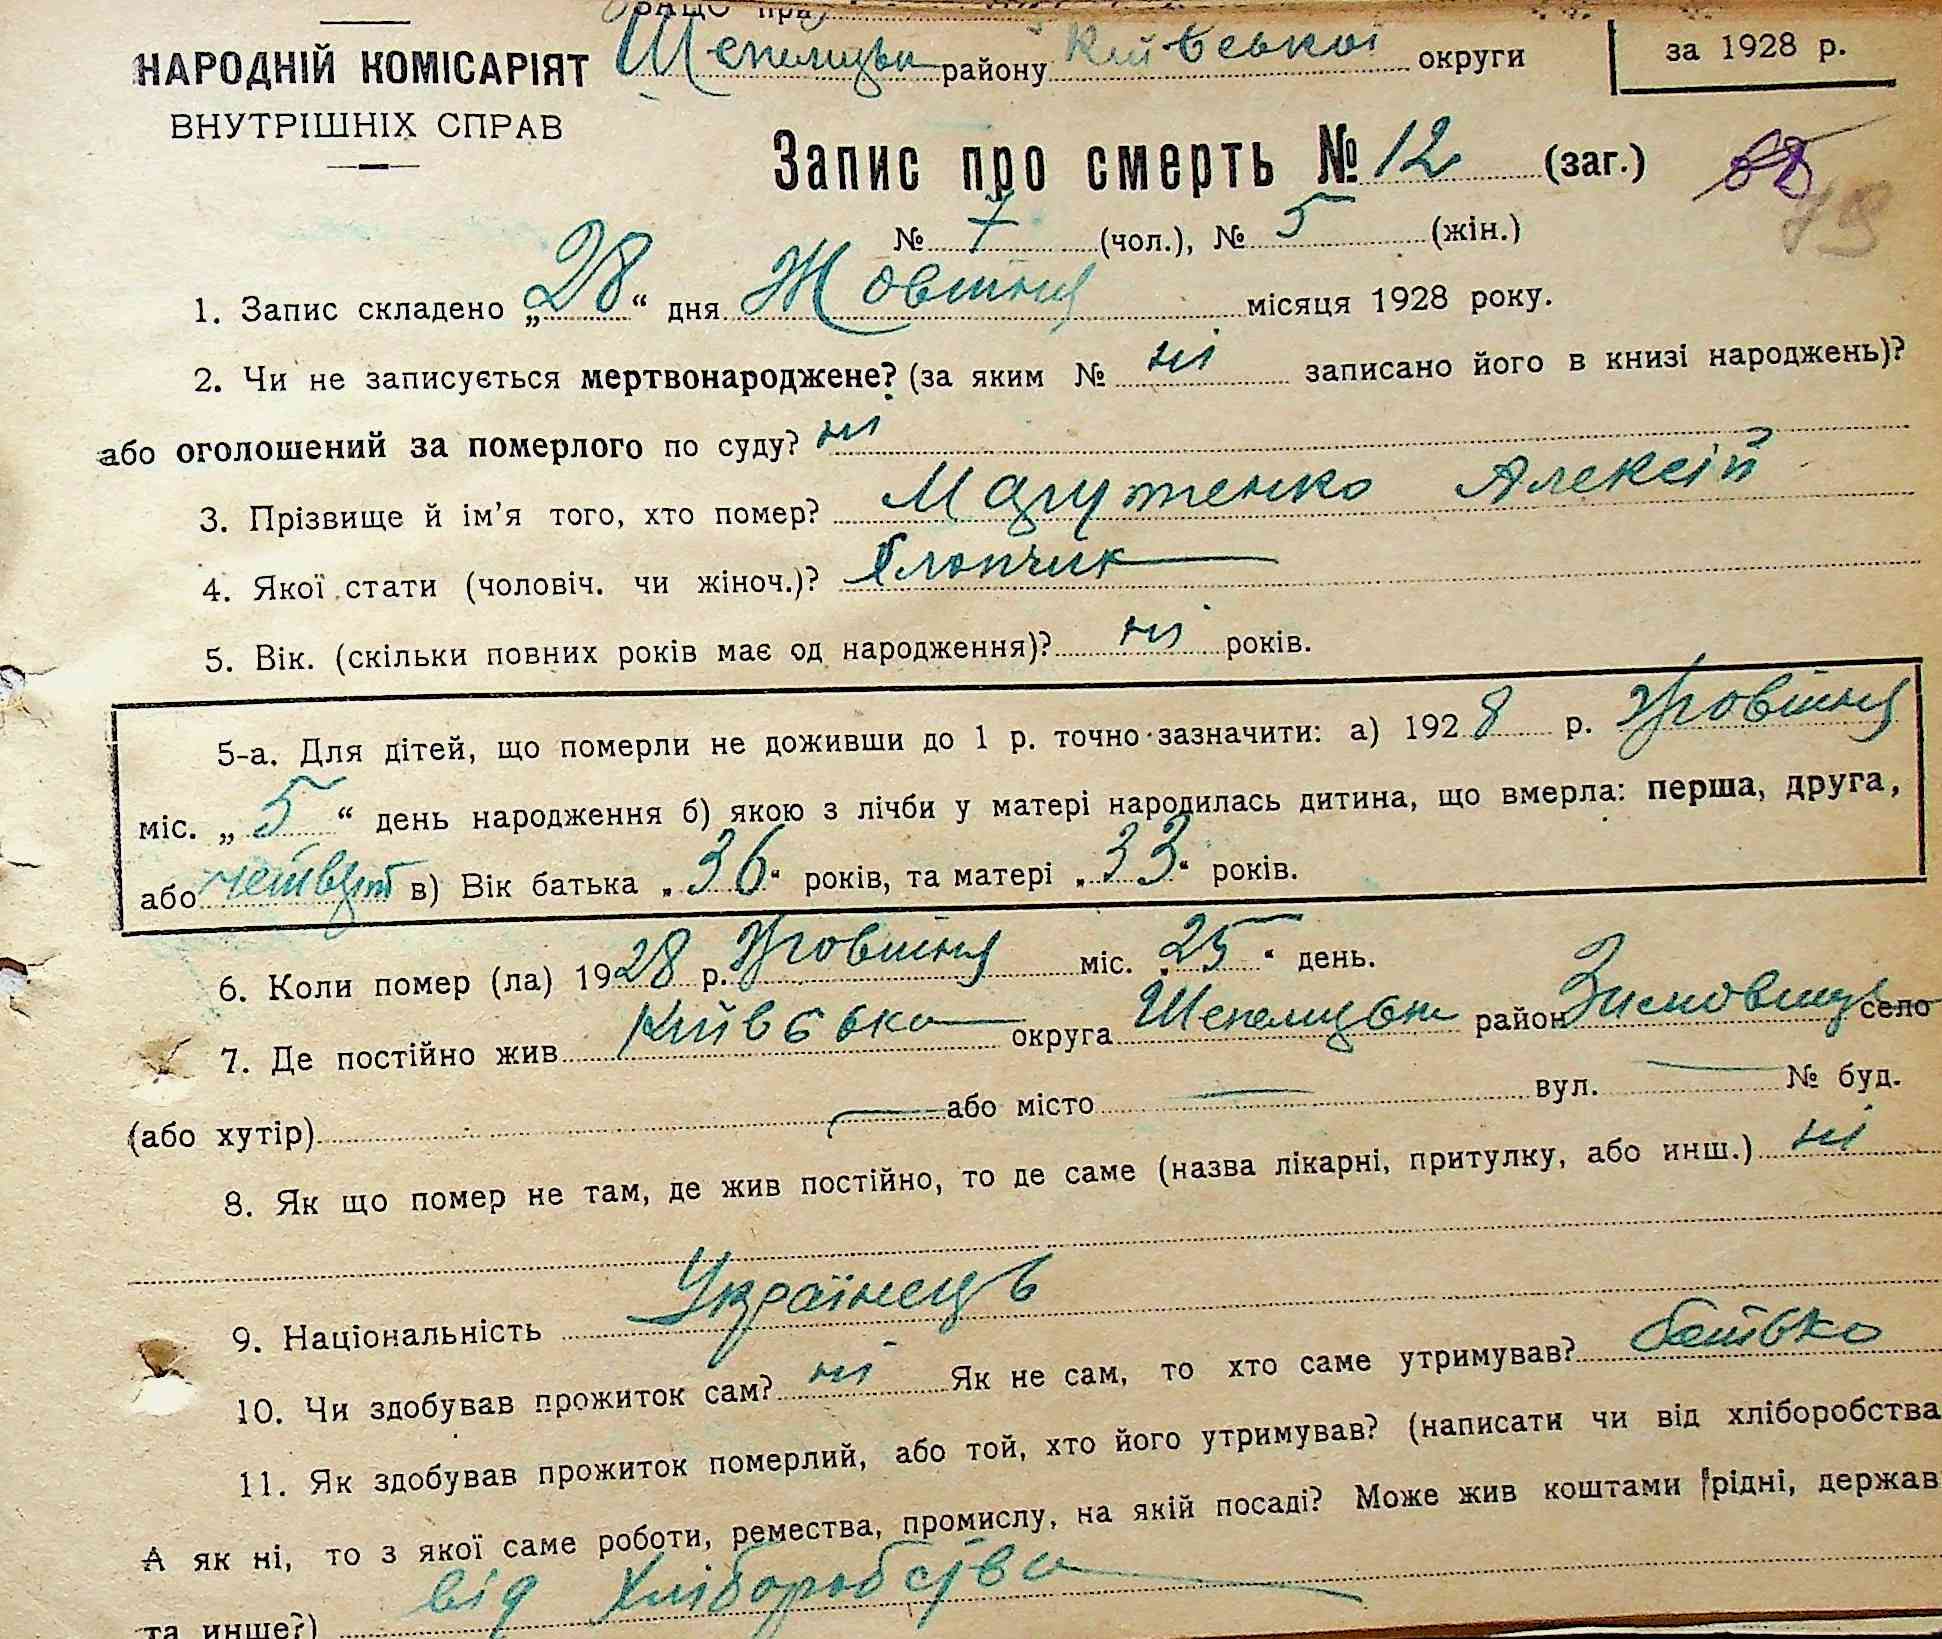 НАРОДНІЙ КОМІСАРІЯТ
ВНУТРІШНІХ СПРАВ
району Київської округи
за 1928 р.
Запис про смерть № 12 (заг.)
№ 7 (чол.), № 5 (жін.)
1. Запис складено „28“ дня Жовтня місяця 1928 року.
2. Чи не записується мертвонароджене? (за яким № ні записано його в книзі народжень)?
або оголошений за померлого по суду? ні
3. Прізвище й ім’я того, хто помер? Алексій
4. Якої стати (чоловіч. чи жіноч.)? Хлопчик
5. Вік. (скільки повних років має од народження)? ні років.
5-а. Для дітей, що померли не доживши до 1 р. точно зазначити: а) 1928 р. Жовтня
міс. „5“ день народження б) якою з лічби у матері народилась дитина, що вмерла: перша, друга,
або четверт в) Вік батька „36“ років, та матері „33“ років.
6. Коли помер (ла) 1928 р. Жовтня міс. „25“ день.
7. Де постійно жив Київська округа район село
(або хутір) або місто вул. № буд.
8. Як що помер не там, де жив постійно, то де саме (назва лікарні, притулку, або инш.) ні
9. Національність Українець
10. Чи здобував прожиток сам? ні Як не сам, то хто саме утримував? батько
11. Як здобував прожиток померлий, або той, хто його утримував? (написати чи від хліборобства
А як ні, то з якої саме роботи, ремества, промислу, на якій посаді? Може жив коштами рідні, держав
та инше?) від хліборобства